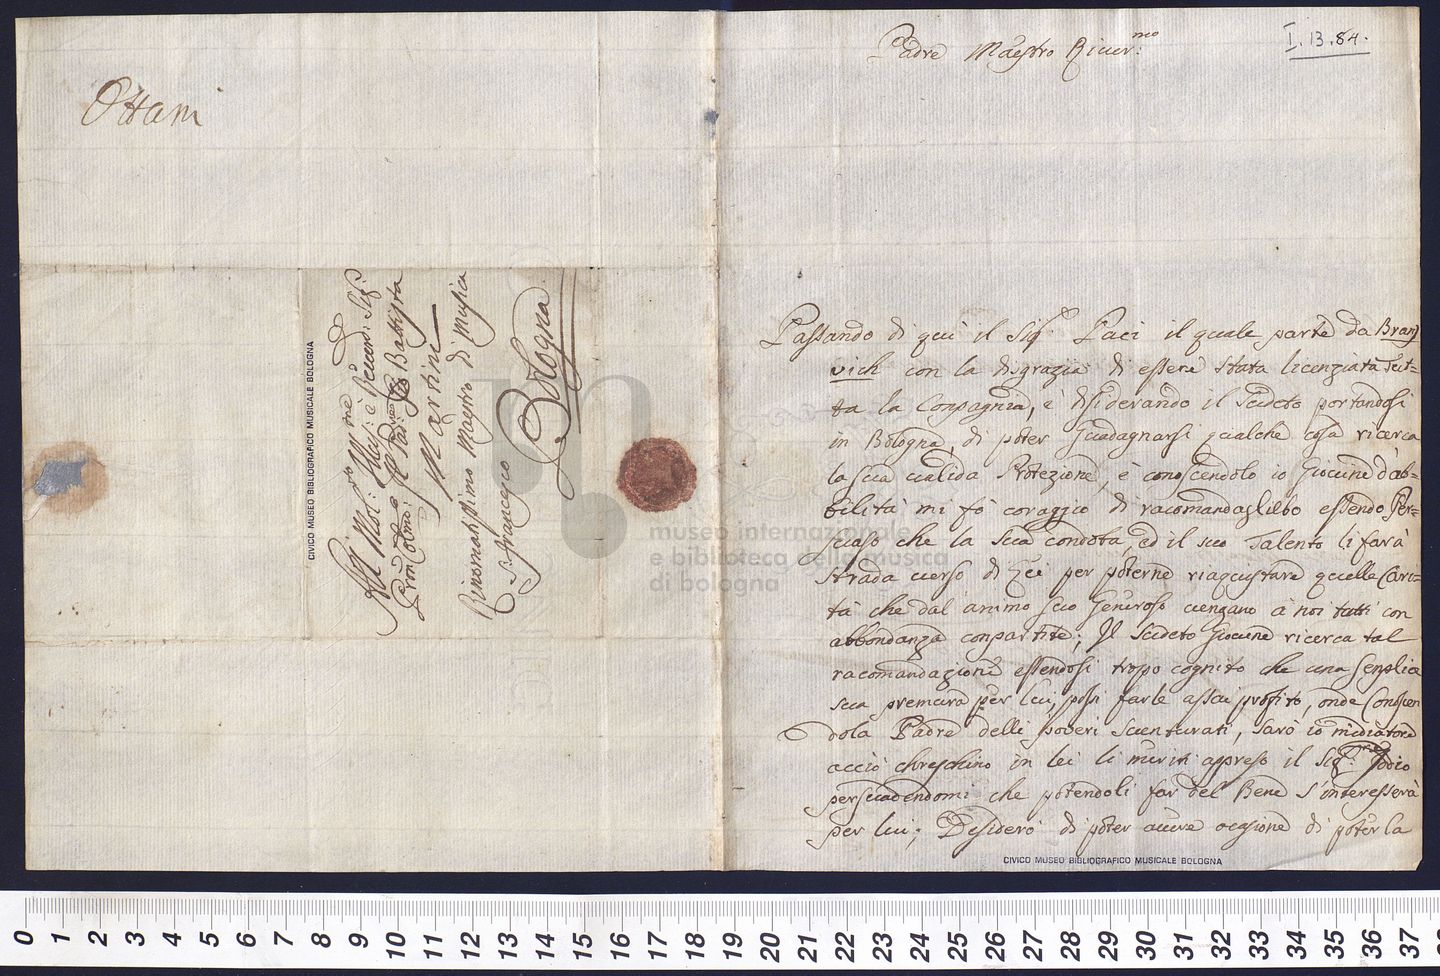 Ottani
All Mol: Illus: e Reuerd: Sig:
Pron Colmo: il Padre Gio Battista
Martini
Rinomatissimo Maestro di Musica
S. Francesco Bologna
CIVICO MUSEO BIBLIOGRAFICO MUSICALE BOLOGNA
I. 13. 84.
Padre Maestro Riuer:mo
Passando di quì il Sig:r Paci il quale parte da Bran-
vich con la disgrazia di essere stata licenziata tut-
ta la Conpagnia, e desiderando il sudeto portandosi
in Bologna, di poter guadagnarsi qualche cosa ricerca
la sua ualida Protezione, e conoscendolo io Giouine d'ab-
bilità mi fò coraggio di racomandagliebo essendo Per-
suaso che la sua condota, ed il suo Talento li farà
strada uerso di Lei per poterne riaqustare quella Cari-
tà che dal animo suo Generoso uengano à noi tutti con
abbondanza conpartite; Il sudeto Giouine ricerca tal
racomandazione essendosi tropo cognito che una senplice
sua premura per lui, possi farle assai profito, onde Conoscen
dola Padre delli poueri suenturati, sarò io mediatore
acciò in lei li meriti appreso il Sig:r
persuadendomi che potendoli far del Bene s'interesserà
per lui; Desidero di poter auere ocasione di poter la
CIVICO MUSEO BIBLIOGRAFICO MUSICALE BOLOGNA
museo internazionale
e biblioteca della musica
di bologna
0 1 2 3 4 5 6 7 8 9 10 11 12 13 14 15 16 17 18 19 20 21 22 23 24 25 26 27 28 29 30 31 32 33 34 35 36 37